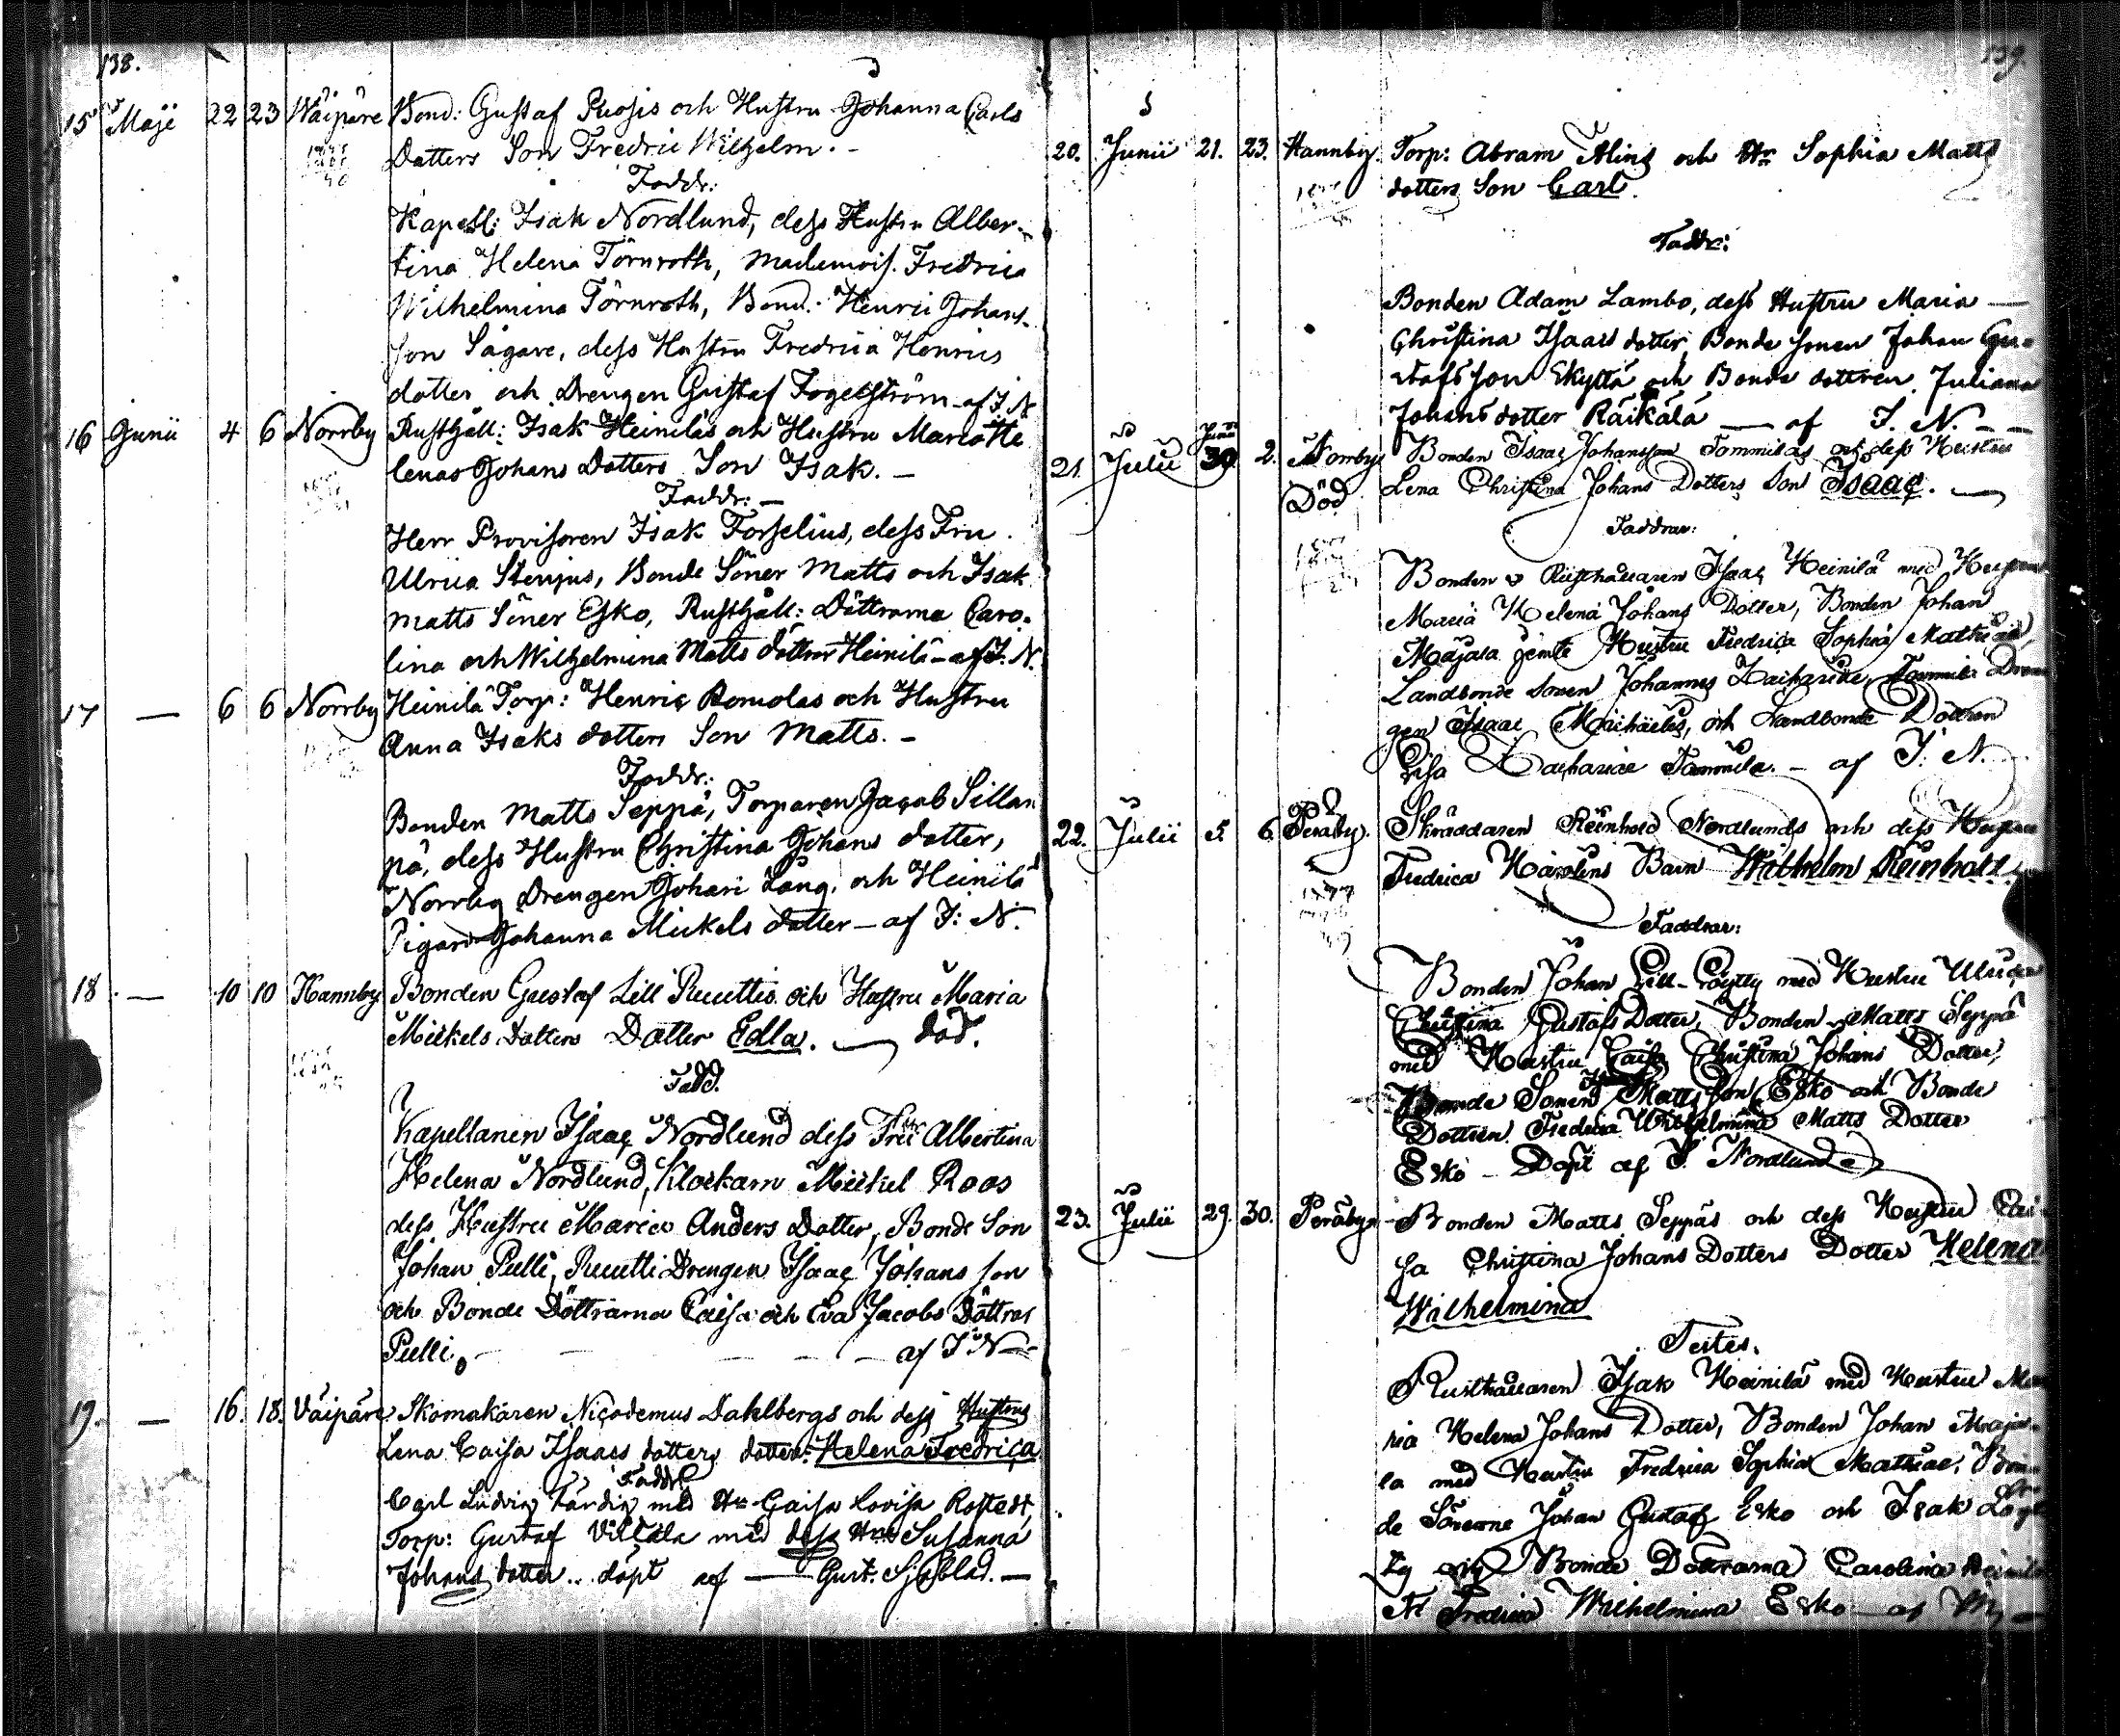 138.
15 Maji 22 23 Wäipäre Bond: Gustaf Ruosis och Hustru Johanna Carls
Dotters Son Fredric Wilhelm. -
Faddr:
Kapell: Isak Nordlund, dess Hustru Alber-
tina Helena Törnroth, Mademois. Fredrica
Wilhelmina Törnroth, Bond. Henric Johans-
son Sågare, dess Hustru Fredrica Henrics
dotter och Drengen Gustaf Fogelström af I. N
16 Junii 4 6 Norrby Rusthåll: Isak Heiniläs och Hustru Maria He
lenas Johans Dotters Son Isak. -
Faddr: -
Herr Provisoren Isak Forselius, dess Fru
Ulrica Stenjus, Bonde Söner Matts och Isak
Matts Söner Esko, Rusthåll: Döttrarna Caro-
lina och Wilhelmina Matts döttrar Heinilä - af I. N.
17 — 6 6 Norrby Heinilä Torp: Henric Romolas och Hustru
Anna Isaks dotters Son Matts. -
Faddr:
Bonden Matts Seppä, Torparen Jacob Sillan
pä, dess Hustru Christina Johans dotter,
Norrby Drengen Johan Lång, och Heinilä
Pigan Johanna Mickels dotter - af I: N.
18 — 10 10 Hannby Bonden Gustaf Lill Ruuttis och Hustru Maria
Mickels Dotters Dotter Edla. — död.
Fadd.
Kapellanen Isaac Nordlund dess Fru Albertina
Helena Nordlund, Klockarn Mickel Roos
dess Hustru Maria Anders Dotter, Bonde Son
Johan Pelli, Ruutti Drengen Isaac Johans son
och Bonde Döttrarna Caisa och Eva Jacobs Döttrar
Pelli, — — — af I N -
19. — 16. 18. Väipäre Skomakaren Nicodemus Dahlbergs och dess Hustrus
Lena Caisa Isaacs dotters dotter Helena Fredrica
Faddr
Carl Ludvig Färdig med Hu Caisa Lovisa Rostedt,
Torp: Gustaf Villala med dess Hru Susanna
Johans dotter.. döpt af — Gust. Sjöblad. —
139.
20. Junii 21. 23. Hannby. Torp: Abram Flinq och Hr Sophia Matts
dotters Son Carl.
Faddr:
Bonden Adam Lambo, dess Hustru Maria —
Christina Isaacs dotter, Bonde sonen Johan Gu-
stafs son Skyttä och Bonde dottren Juliana
Johans dotter Räikälä — af I. N. - -
21. Julii Junii 30. 2. Norrby Bonden Isaac Johansson Tommilas och dess Hustru
Död Lena Christina Johans Dotters Son Isaac. —
Faddrar:
Bonden Rusthållaren Isaac Heinilä med Hustru
Maria Helena Johans Dotter, Bonden Johan
Majala jemte Hustru Fredrica Sophia Mathiae,
Landbonde sonen Johannes Zachariae, Tommila Dren
gen Isaac Michaelis, och Landbonde Dottren
Lisa Zachariae Tommila. - af I. N.
22. Julii 5. 6. Peräby. Skräddaren Reinhold Nordlunds och dess Hustru
Fredrica Karolins Barn Wilhelm Reinhold.
Faddrar:
Bonden Johan Lill-Löytty med Hustru Ulrica
Christina Gustafs Dotter, Bonden Matts Seppä
med Hustru Caisa Christina Johans Dotter,
Bonde Sonen Matts son Esko och Bonde
Dottren Fredrica Wilhelmina Matts Dotter
Esko - Döpt af I. Nordlund
23. Julii 29. 30. Peräby Bonden Matts Seppäs och dess Hustru Cai-
sa Christina Johans Dotters Dotter Helena
Wilhelmina
Testes.
Rusthållaren Isak Heinilä med Hustru Ma
ria Helena Johans Dotter, Bonden Johan Maja-
la med Hustru Fredrica Sophia Mathiae, Bon
de Sönerne Johan Gustaf Esko och Isak Löyt
ty och Bonde Döttrarna Carolina Heinilä
o Fredrica Wilhelmina Esko — af